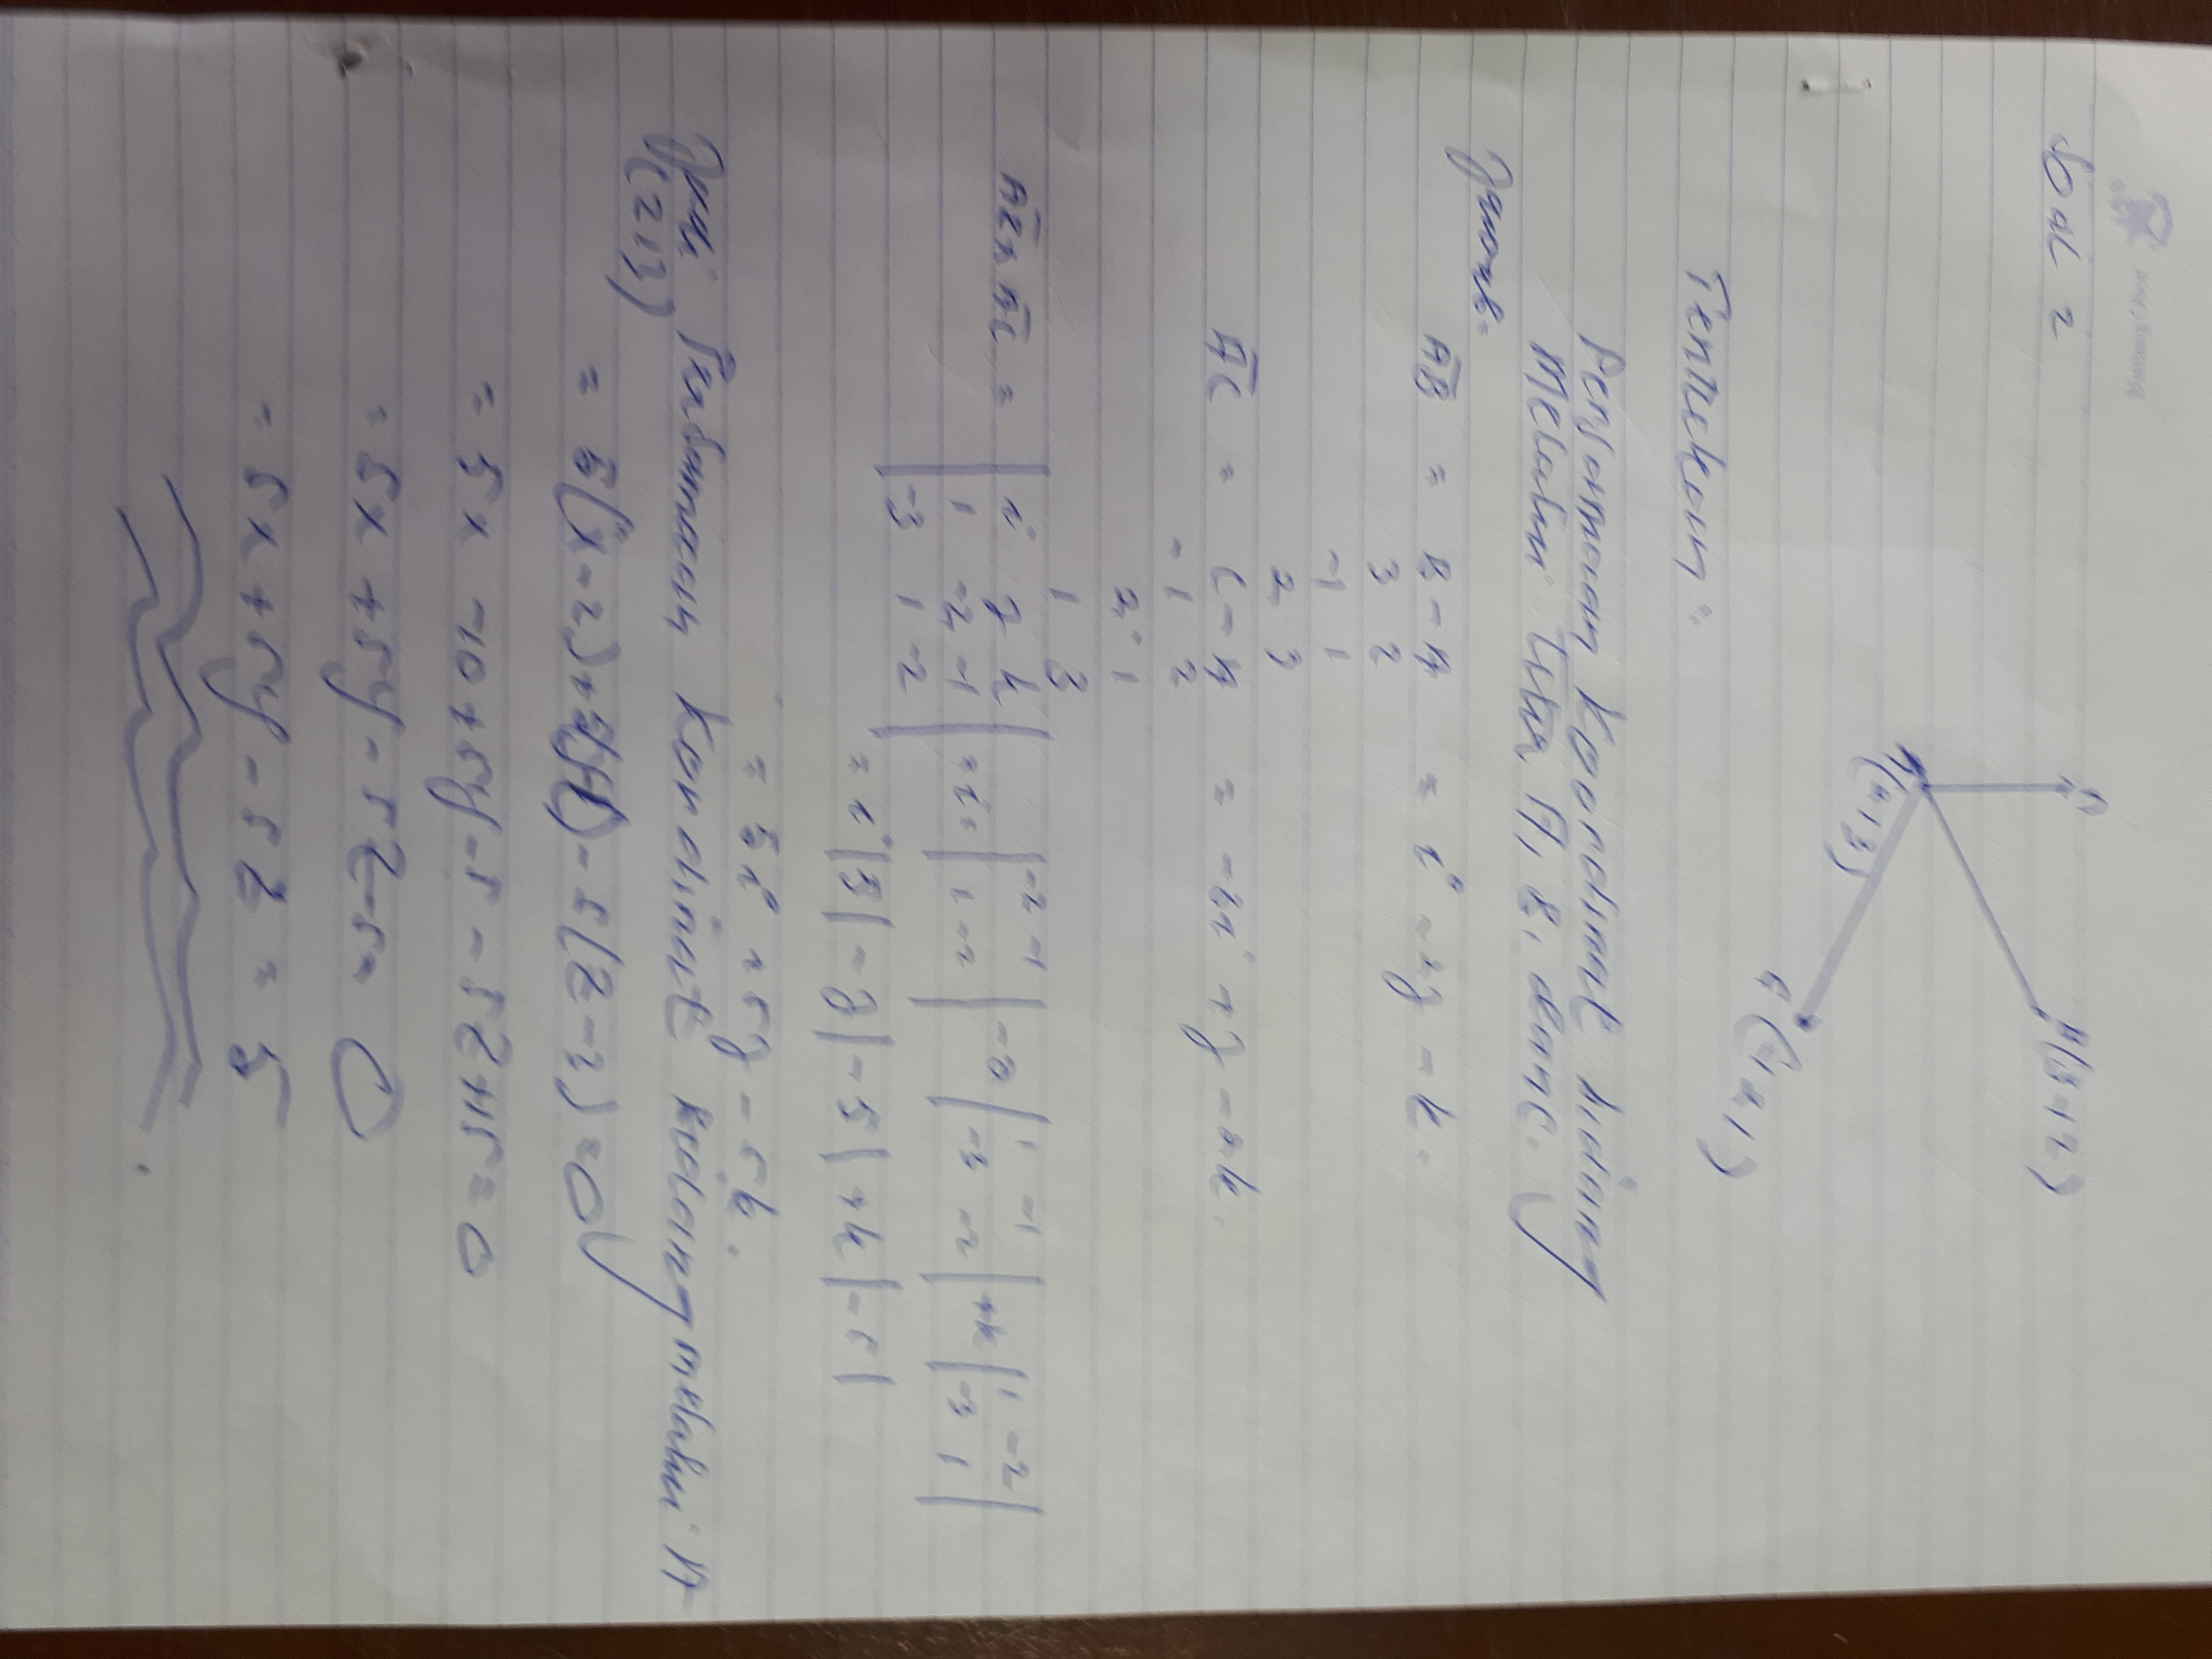 Soal 2
n
B(3-12)
A
(213)
C(-121)
Tentukan:
Persamaan Koordinat bidang
melalui titik A, B, dan C.
Jawab=
AB = B-A = i - 2j - k.
3 2
-1 1
2 3
AC = C-A = -3i + j - 2k.
-1 2
2 1
1 3
AB x AC = | i j k | = i | -2 -1 | - j | 1 -1 | + k | 1 -2 |
| 1 -2 -1 | | 1 -2 | | -3 -2 | | -3 1 |
| -3 1 -2 |
= i |5| - j |-5| + k |-5|
= 5i + 5j - 5k.
Jadi Persamaan Koordinat bidang melalui A
(213)
= 5(x-2)+5(y-1)-5(z-3)=0
= 5x -10 + 5y-5 - 5z+15=0
= 5x + 5y - 5z = 0
= 5x + 5y - 5z = 5